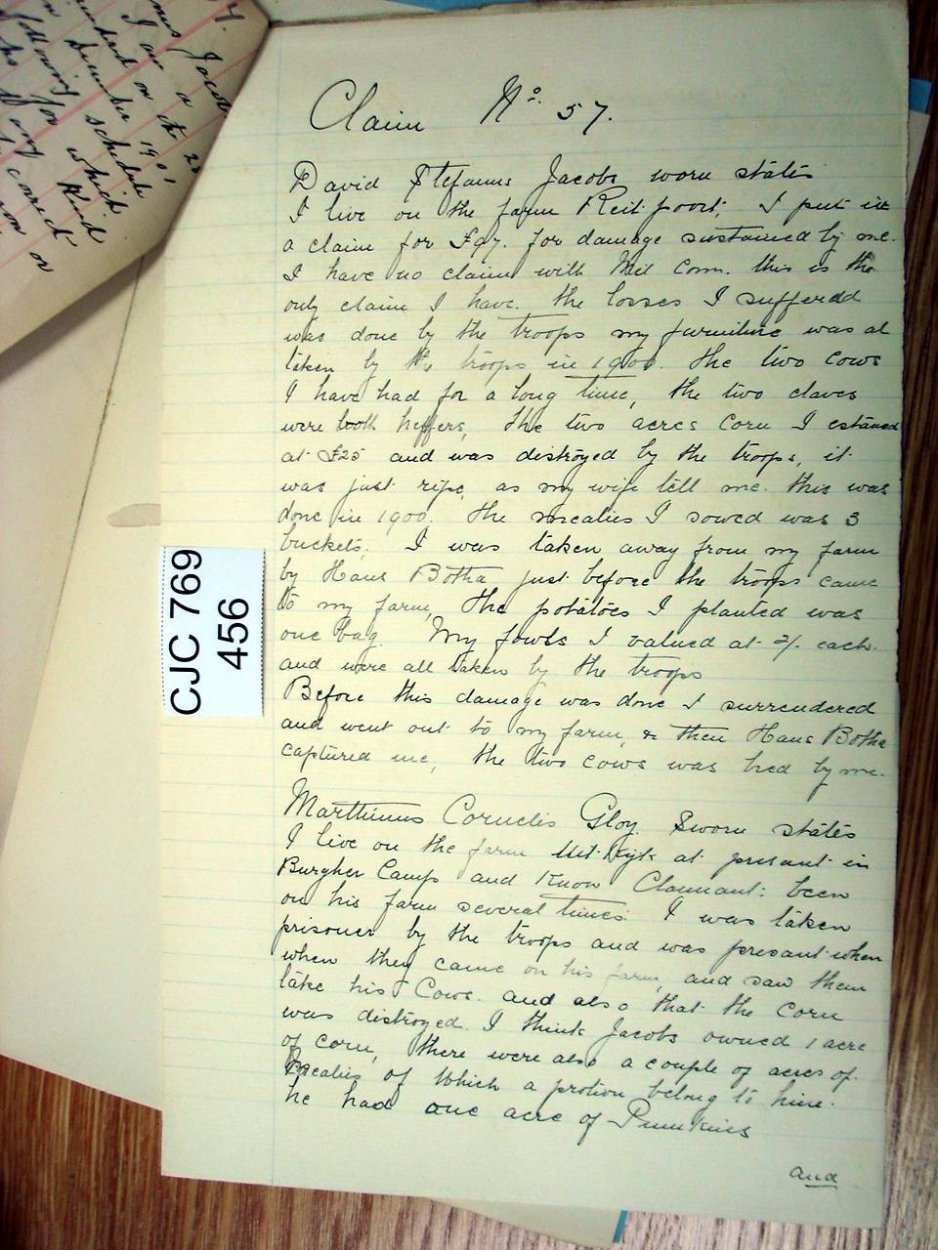 Claim No. 57.
David Stefanus Jacobs worn states
I live on the farm Reit poort, I put in
a claim for £97. for damage sustained by me.
I have no claim with Mil Com. this is the
only claim I have. the losses I sufferd
was done by the troops my furniture was al
taken by the troops in 1900. the two cows
I have had for a long time, the two claves
were both heffers, the two acres corn I
at £25 and was distroyed by the troops, it
was just ripe, as my wife tell me. this was
done in 1900. the mealies I sowed was 3
buckets. I was taken away from my farm
by Hans Botha, just before the troops came
to my farm, the potatoes I planted was
one bag. My fowls I valued at 2/. each.
and were all taken by the troops
Before this damage was done I surrendered
and went out to my farm, & then Hans Botha
captured me, the two cows was bred by me.
Marthinus Cornelis Gloy. Sworn states
I live on the farm at presant in
Burgher Camp and Know Claimant: been
on his farm several times. I was taken
prisoner by the troops and was presant when
when they came on his farm, and saw them
take his Cows. and also that the Corn
was distroyed. I think Jacobs owned 1 acre
of corn, there were also a couple of acres of
Mealies of Which a protion belong to him.
he had one acre of Pumkins
and
CJC 769
456
Jacobs
I am a
on the 28
December 1901
schedule
following
for which
correct
on
or